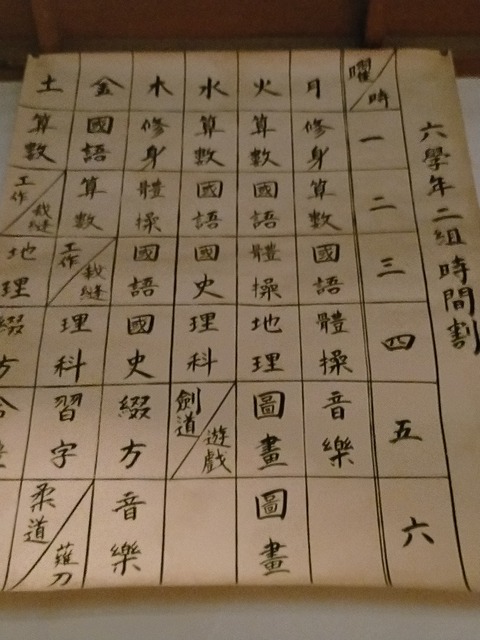 六學年二組時間割
曜
時
一
二
三
四
五
六
月
修身
算數
國語
體操
音樂
火
算數
國語
體操
地理
圖畫
圖畫
水
算數
國語
國史
理科
劍道
遊戲
木
修身
體操
國語
國史
綴方
音樂
金
國語
算數
工作
裁縫
理科
習字
柔道
薙刀
土
算數
工作
裁縫
地理
綴方